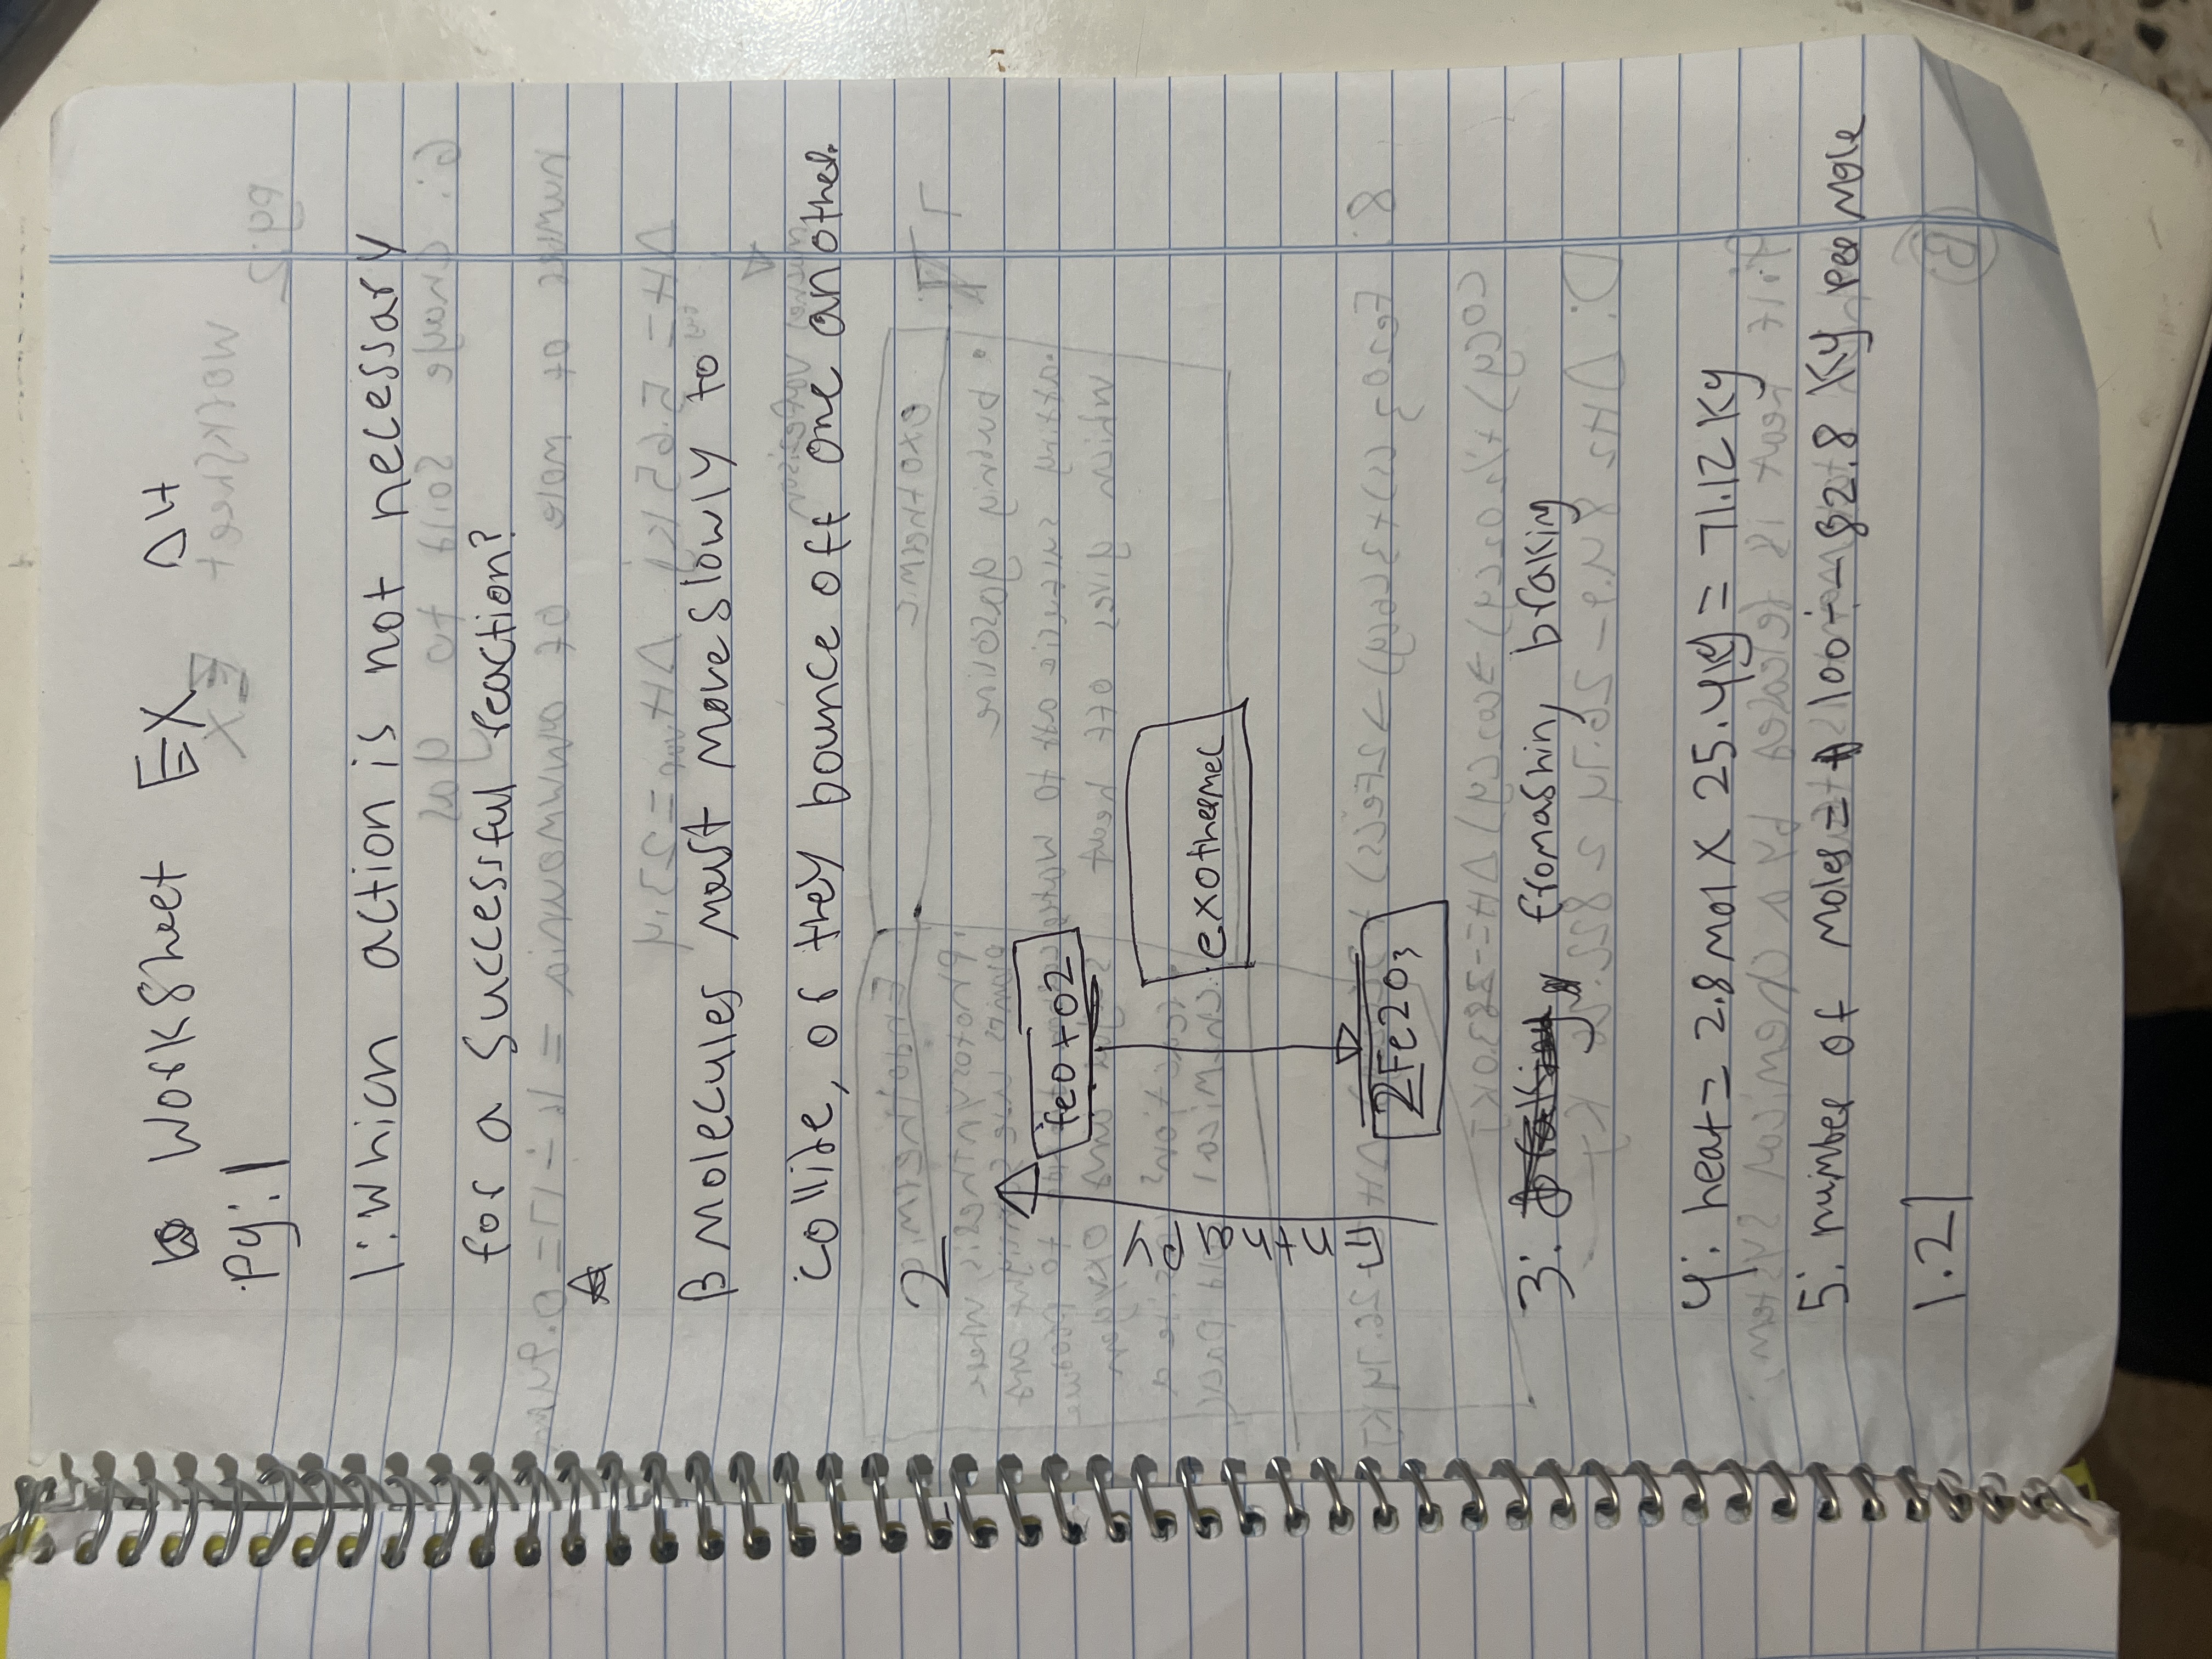 Worksheet EX ΔH
pg:1
1: Which action is not necessary
for a successful reaction?
B molecules must move slowly to
collide, or they bounce off one another.
2
feo + O2
Enthalpy
exothermec
2Fe2O3
3: fromashin, braking
4: heat = 2.8 mol x 25.4kg) = 71.12 Kg
5: number of moles = 100 ÷ - 82.8 Kg per Mole
1.21